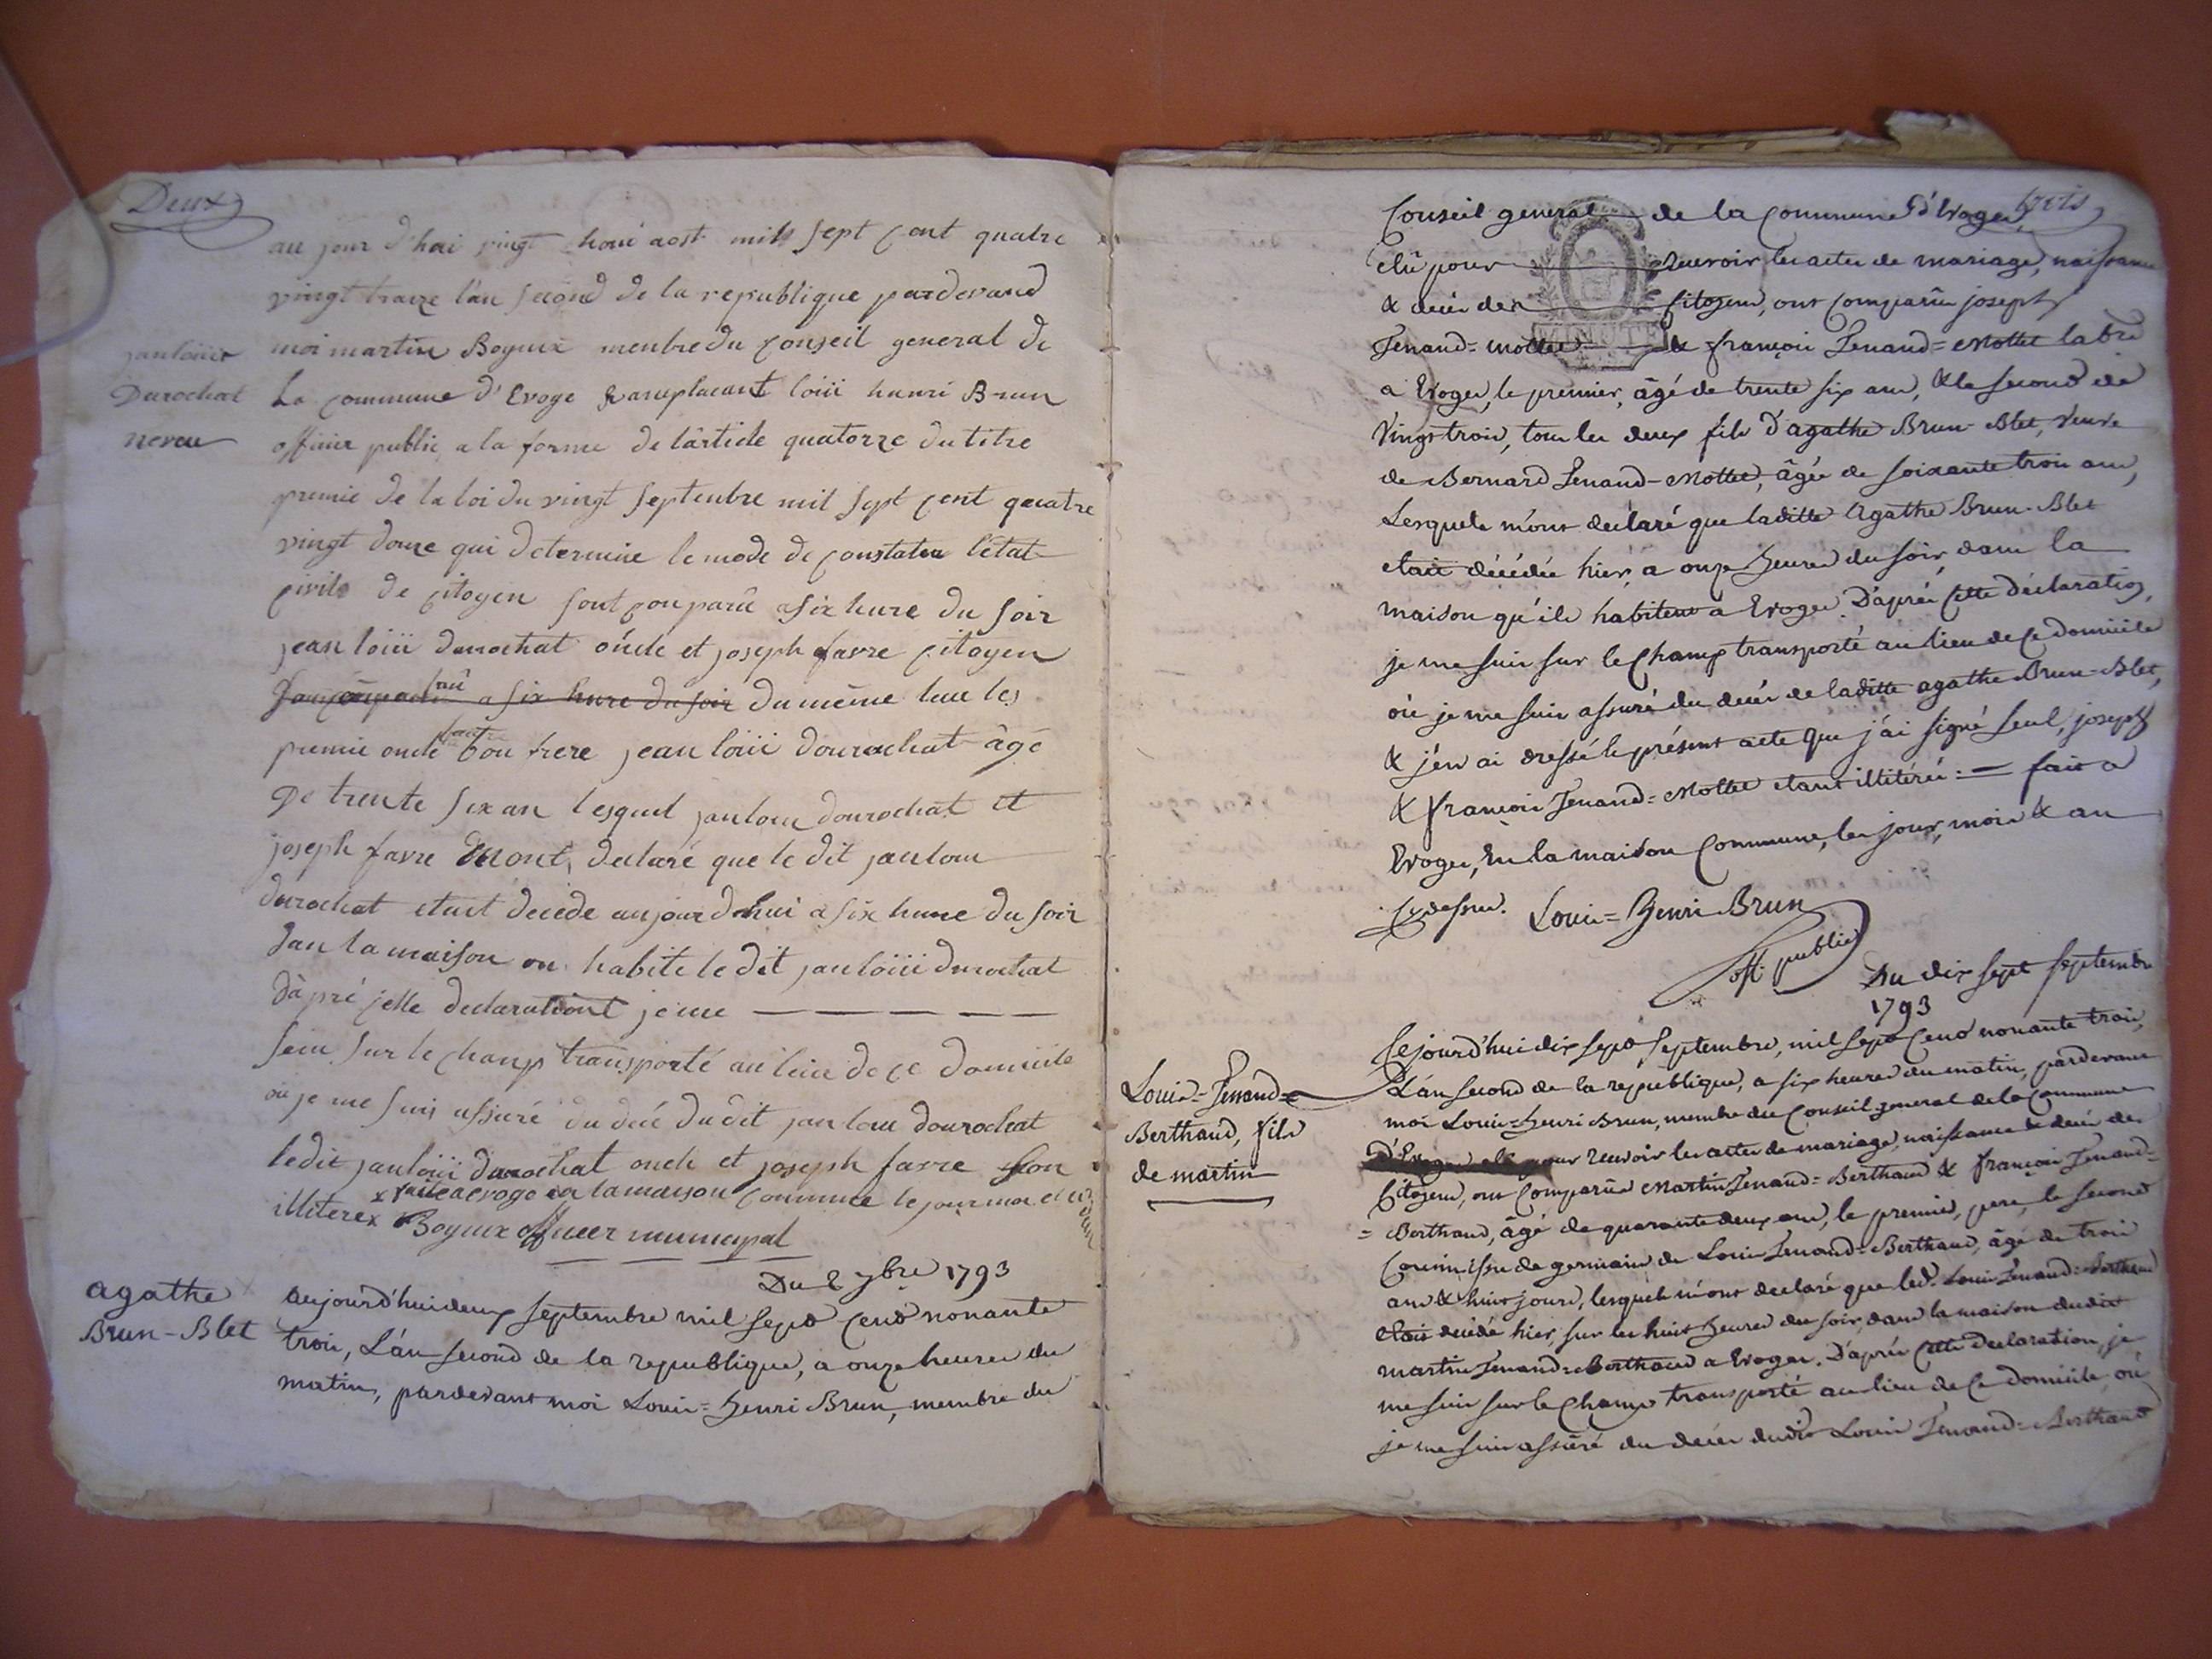 Deux
au jour d'hui vingt aost mils sept cent quatre
vingt traize l'an second de la republique pardevand
moi martin Boyeux menbre du conseil general de
La commune d'Evoge Ranplacant loiii hanri Brun
officier public a la forme de lárticle quatorze du titre
premie de la loi du vingt septenbre mil sept cent quatre
vingt douze qui determine le mode de constater l'état
civils de citoyen sont conparû a six hure du soir
jean loiii durochat oncle et joseph favre citoyen
a six hure du soir du même lieu les
premie oncle frere jean loiii dourochat âgé
De trente six an lesquel jan louii dourochat et
joseph favre mont, declaré que le dit jan louii
durochat etait decede aujour dhui a six hure du soir
dan la maison ou habite le dit jan loiii durochat
d'àpré celle declarationt je me — — — — —
suiu sur le chanp transporté au lieu de ce domicile
où je me suis assuré du décé du dit jan louii dourochat
ledit jan loiii durochat oncle et joseph favre son
x faite a evoge en la maison commune le jour moi et an
illiterex Boyeux officeer municipal
jan loiiis
Durochat
neveu
Du 2 7bre 1793
agathe
Brun-Blet
aujourd'hui deux septembre mil sept cent nonante
trois, L'án second de la republique, a onze heures du
matin, pardevant moi Louis=henri Brun, membre du
trois
Conseil general de la Commune d'Evoges,
élû pour recevoir les actes de mariage, naissance
& décés des Citoyens, ont comparûs joseph
Tenand=Mottet & françois Tenand=Mottet labrs
a Evoges, le premier, âgé de trente six ans, & le second de
vingt trois, tous les deux fils d'agathe Brun-Blet, veuve
de Bernard Tenand-Mottet, âgée de soixante trois ans,
Lesquels m'ont déclaré que laditte Agathe Brun-Blet
etait décédée hier, a onze heures du soir, dans la
maison qu'ils habitent a Evoges. D'aprés cette déclaration,
je me suis sur le Champ transporté au lieu de ce domicile
où je me suis assuré du décés de laditte agathe Brun-Blet,
& j'en ai dressé le présent acte que j'ai signé seul, joseph
& françois Tenand=Mottet etants illitérés:= fait a
Evoges, en la maison Commune, les jour, mois & an
Cydessus. Louis=Henri Brun
off. public
Du dix sept septembre
1793
Louis=Tenand=
Berthaud, fils
de martin
Cejourd'hui dix sept septembre, mil sept Cent nonante trois,
L'án second de la république, a six heures du matin, pardevant
moi Louis=henri Brun, membre du Conseil general de la Commune
d'Evoges elû pour recevoir les actes de mariage, naissance & décés des
Citoyens, ont Comparûs Martin Tenand=Berthaud & françois Tenand=
=Berthaud, âgé de quarante deux ans, le premier, pere, le second
Cousin issu de germain de Louis Tenand=Berthaud, âgé de trois
ans & huit jours, lesquels m'ont declaré que led. Louis Tenand=Berthaud
etait décédé hier, sur les huit heures du soir, dans la maison dudit
martin Tenand=Berthaud a Evoges. D'aprés cette declaration, je
me suis sur le Champ transporté au lieu de ce domicile où
je me suis assuré du décés dudit Louis Tenand=Berthaud